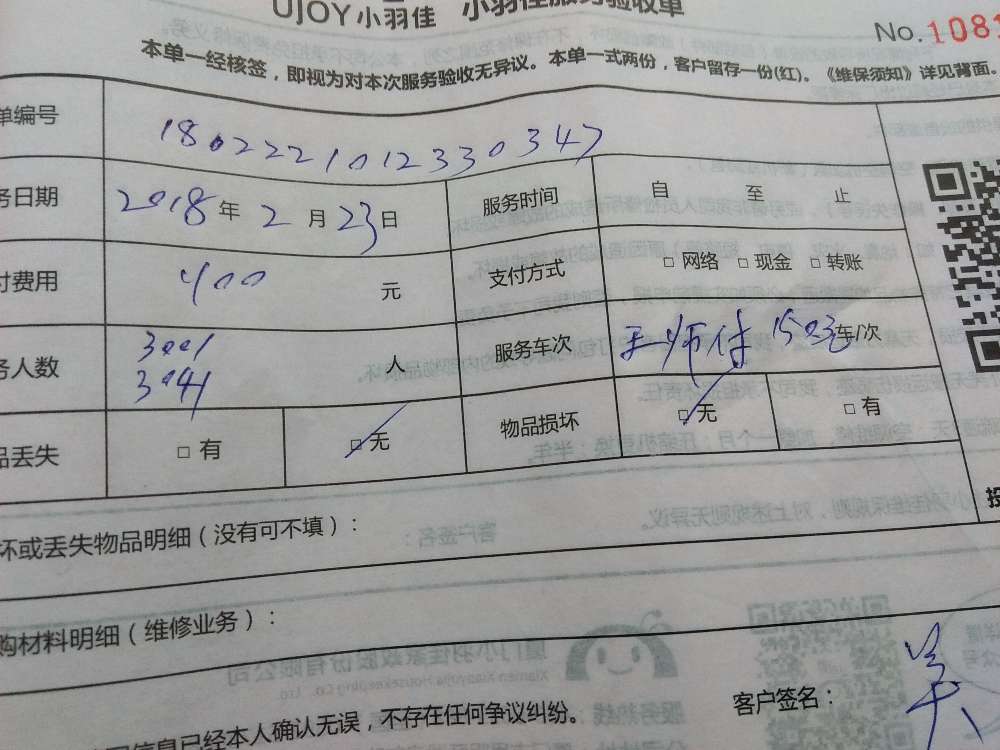 UJOY小羽佳 小羽佳服务验收单
No.1081
本单一经核签，即视为对本次服务验收无异议。本单一式两份，客户留存一份(红)。《维保须知》详见背面。
单编号 1802221012330347
务日期 2018年2月23日 服务时间 自 至 止
付费用 400 元 支付方式 □ 网络 □ 现金 □ 转账
务人数 3001 人 服务车次 师付 1503 车/次
3041
品丢失 □ 有 □ 无 物品损坏 □ 无 □ 有
坏或丢失物品明细（没有可不填）：
购材料明细（维修业务）：
信息已经本人确认无误，不存在任何争议纠纷。
客户签名：